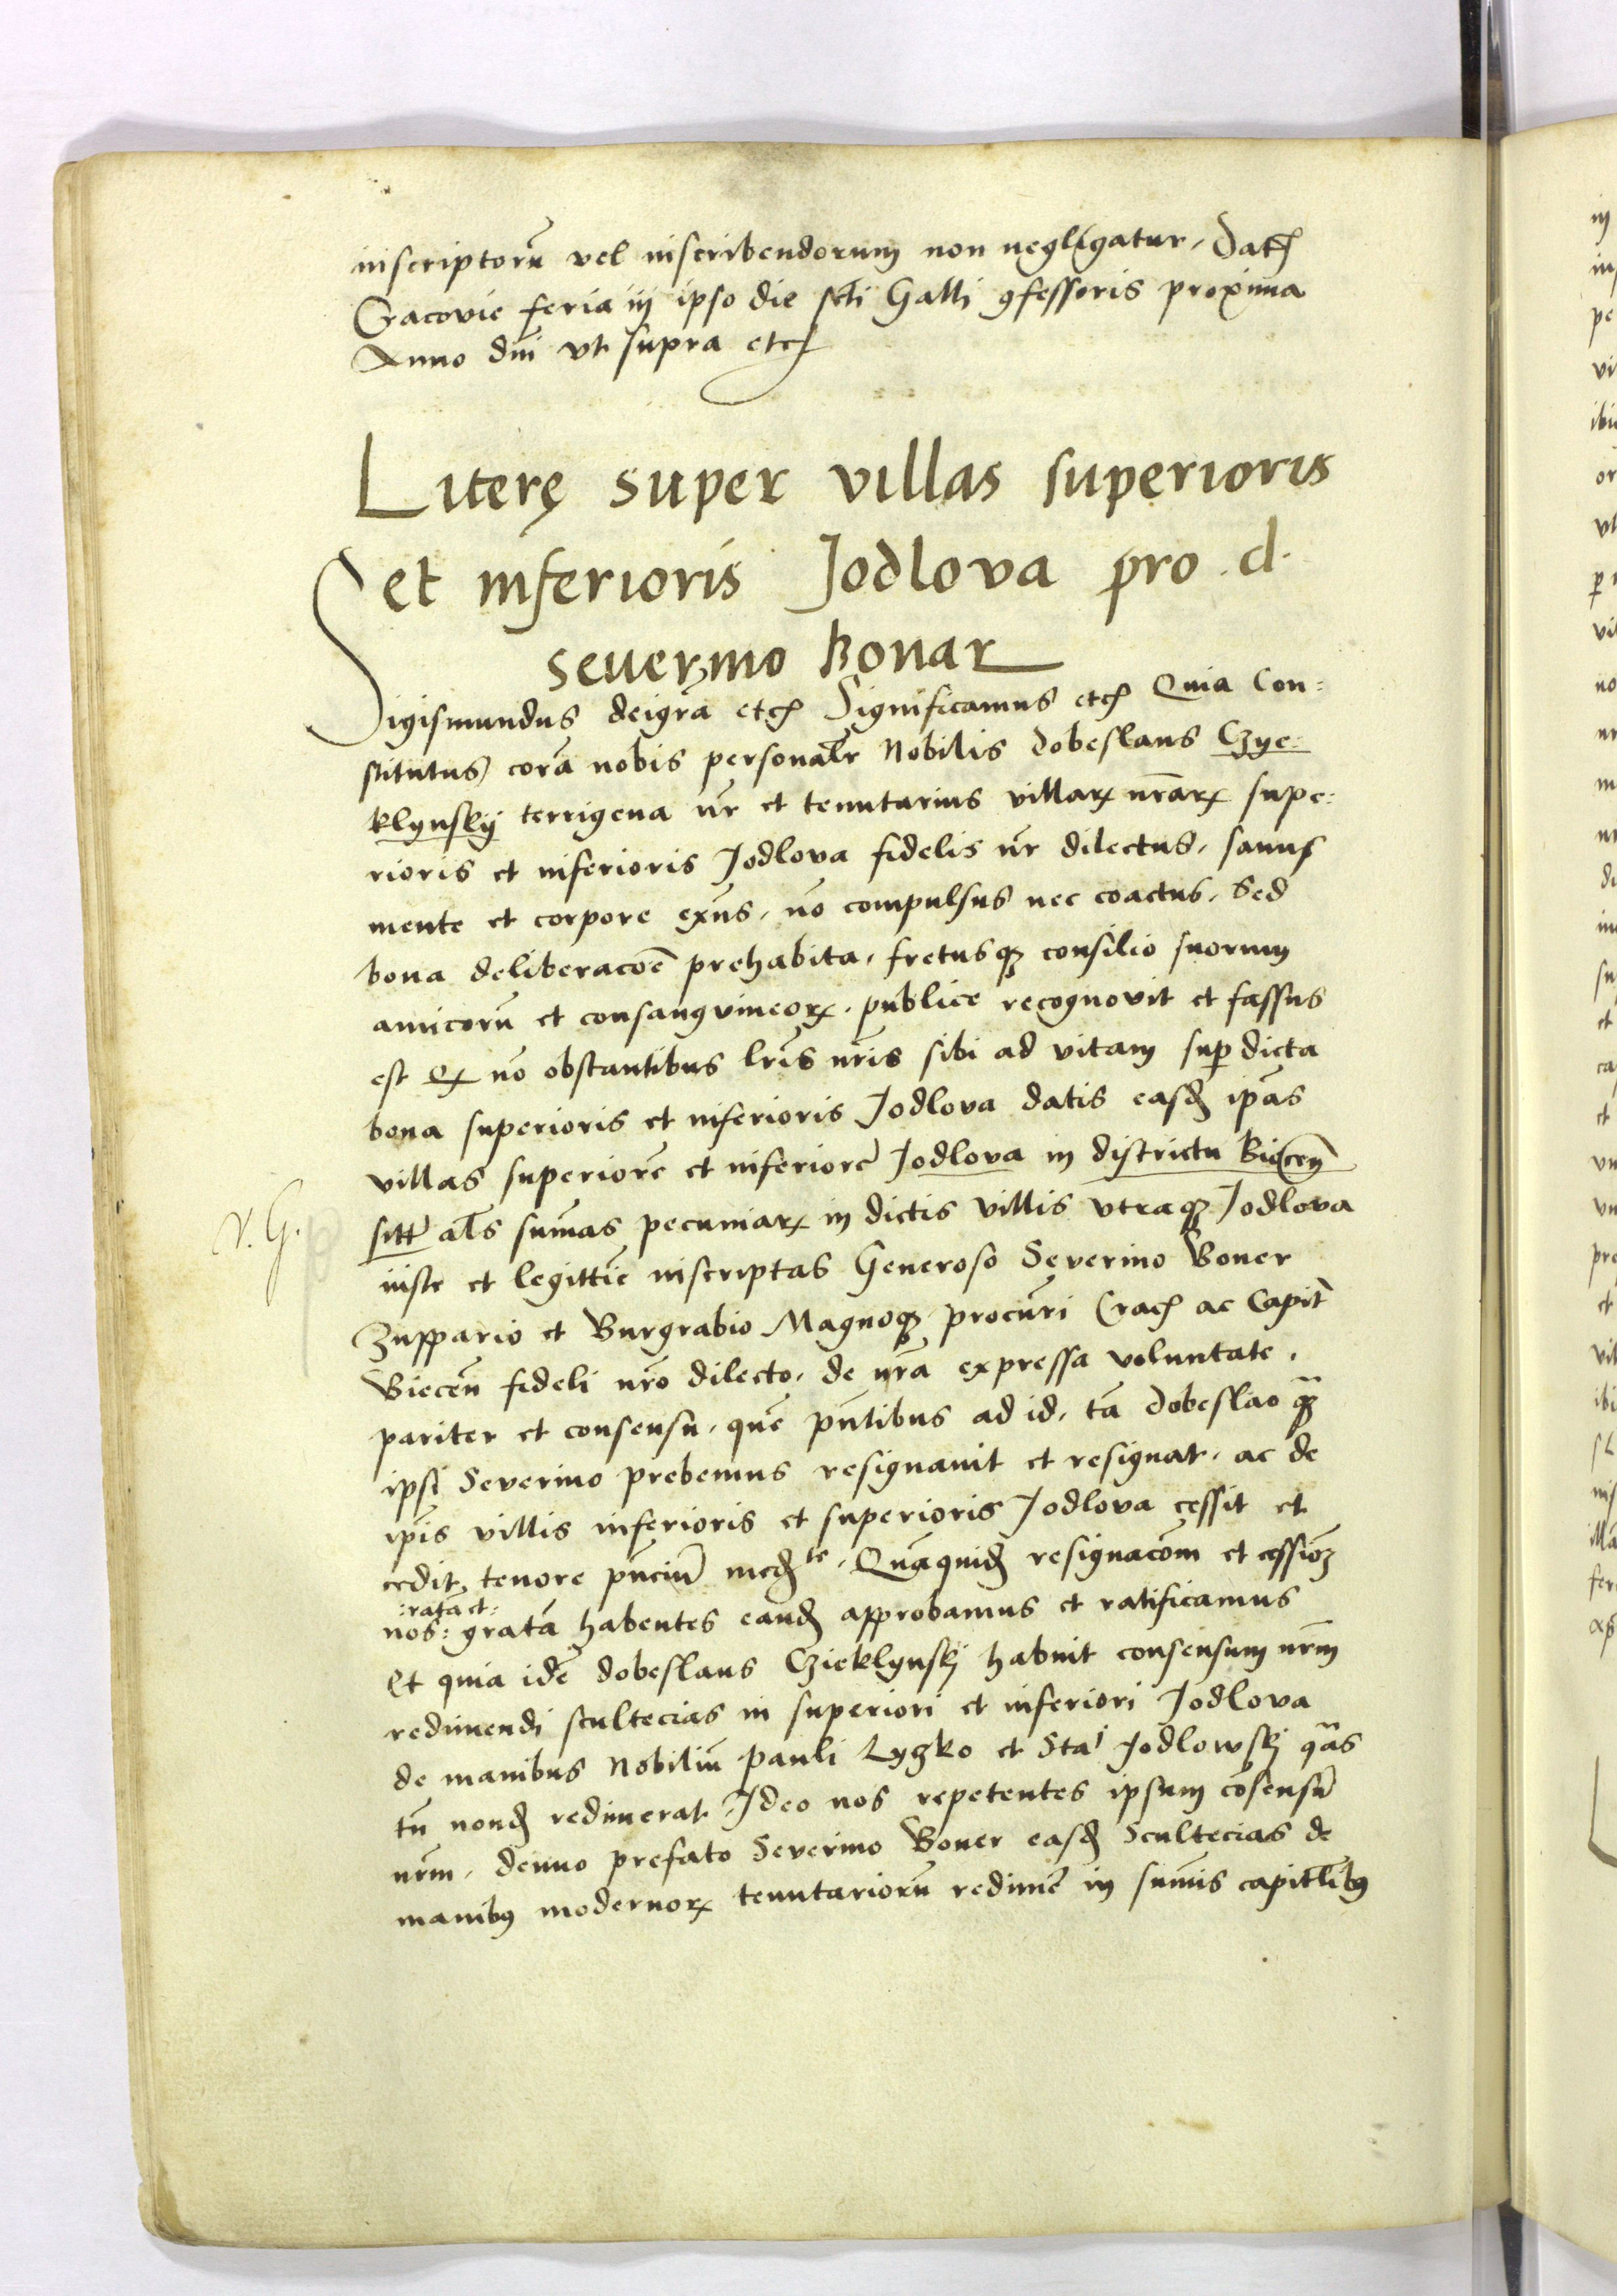 inscriptorũ vel inscribendorum non negligatur. Datꝭ
Cracovie feria iij ipso die scti Galli ꝯfessoris proxima
Anno dni vt supra etcꝭ
Literę super villas superioris
et inferioris Jodlova pro d.
Seuerino Bonar
Sigismundus dei grã etcꝭ Significamus etcꝭ Quia Con:
stitutus corã nobis personalr Nobilis Dobeslaus Czye:
klynskij terrigena nr̃ et tenutarius villarꝝ nrãrꝝ supe:
rioris et inferioris Jodlova fidelis nr̃ dilectus, sanus
mente et corpore exñs, nõ compulsus nec coactus, Sed
bona deliberacoẽ prehabita, fretusqꝫ consilio suorum
amicorũ et consangvineorꝝ, publice recognovit et fassus
est Qꝫ nõ obstantibus lrĩs nrĩs sibi ad vitam suꝑ dicta
bona superioris et inferioris Jodlova datis easdꝫ ipãs
villas superiorẽ et inferiorẽ Jodlova in districtu Biecen̄
sitt̃ al̃s sum̃as pecuniarꝝ in dictis villis vtraqꝫ Jodlova
N. G.
iuste et legittiẽ inscriptas Generoso Severino Boner
Zuppario et Burgrabio Magnoqꝫ procur̃i Cracꝭ ac Capit̃
Biecen̄ fideli nrõ dilecto, de nrã expressa voluntate,
pariter et consensu, quẽ pñtibus ad id, tã Dobeslao qꝫ̃
ipsi Severino prebemus resignauit et resignat, ac de
ip̃is villis inferioris et superioris Jodlova cessit et
cedit, tenore pñciũ medꝫte. Quãquidꝫ resignacõm et cessioꝫ
:ratã et:
nos: gratã habentes eandꝫ approbamus et ratificamus
Et quia idẽ Dobeslaus Czieklynskj habuit consensum nrm̃
redimendi scultecias in superiori et inferiori Jodlova
de manibus Nobiliũ Pauli Lyzko et Stai Jodlowskj quãs
tñ nondꝫ redimerat Ideo nos repetentes ipsum cõsensũ
nrm̃, denuo prefato Severino Boner easdꝫ Scultecias de
manibꝰ modernorꝝ tenutariorũ redimẽ in sum̃is capitl̃ibꝰ